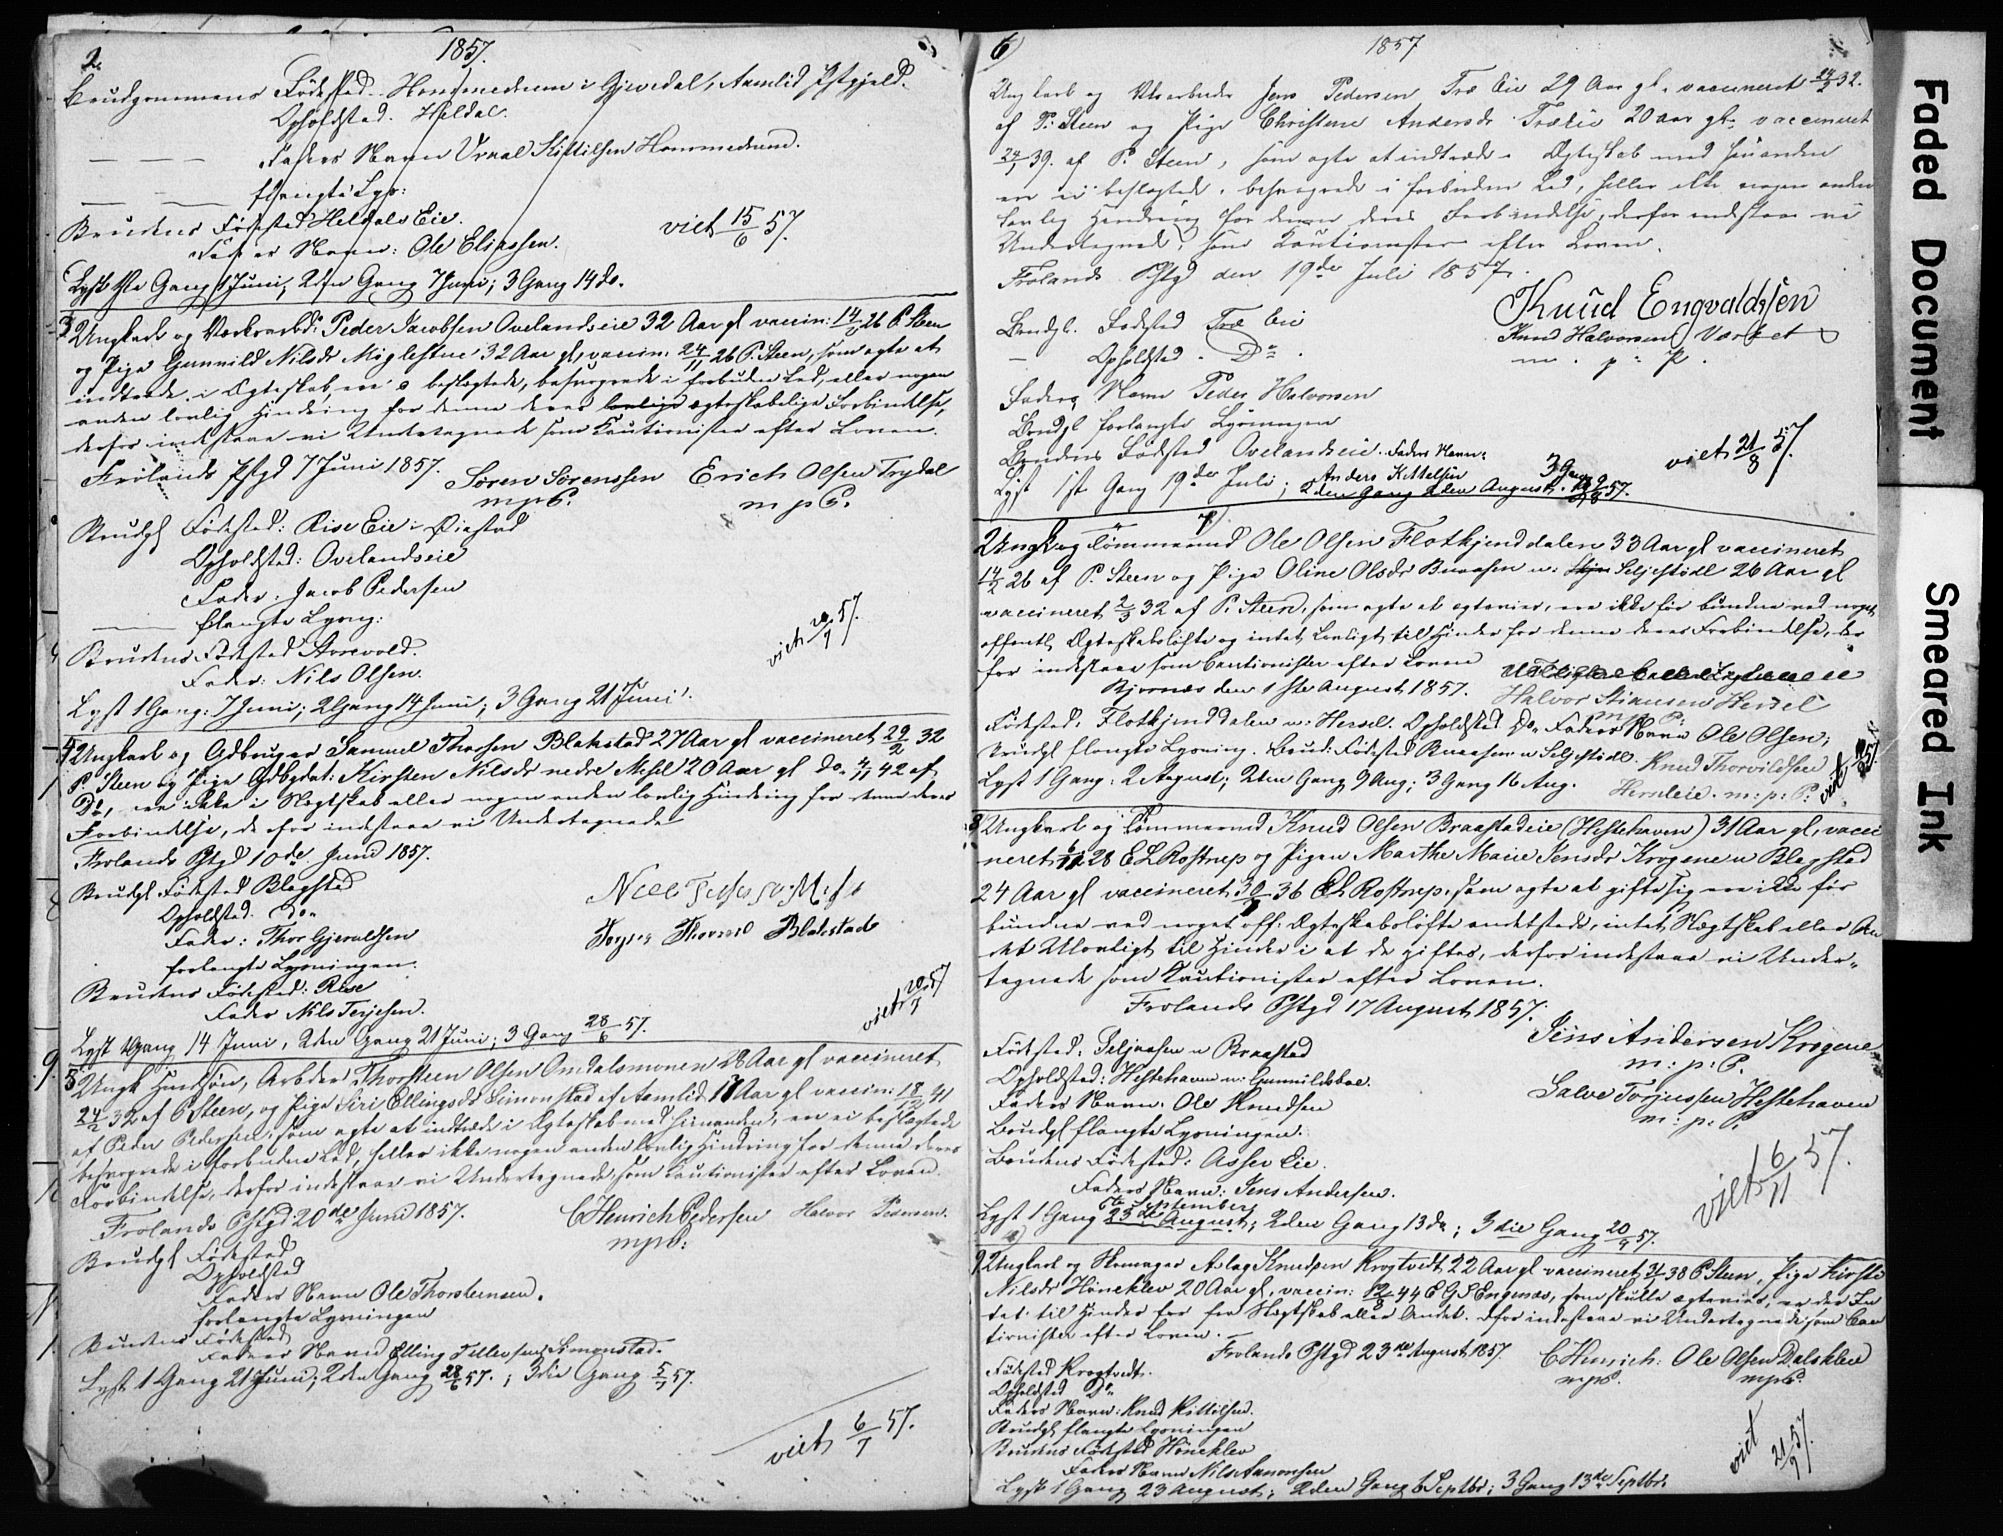 2.
1857.
Brudgommens Fødested. Hommedrum i Gjevedal, Aamlid Pstgjeld.
Opholdsted. Heldal.
Faders Navn Vraal Kittilsen Hommedrum.
flangte Lys:
Brudens Fødested Heldals Eie. viet 15/6 57.
Faders Navn: Ole Eliassen.
Lyst 1ste Gang 1 Juni; 2den Gang 7 Juni; 3 Gang 14 do.
3 Ungkarl og Værksarbd: Peder Jacobsen Ovelandseie 32 Aar gl vaccin: 26 P. Steen
og Pige Gunnild Nilsdr Møglestue 32 Aar gl, vaccin. 24/11 26 P. Steen, som agte at
indtræde i Ægteskab, ere ei beslægtede, besvogrede i forbuden Led, eller nogen
anden lovlig Hindring for denne deres lovlige ægteskabelige Forbindelse,
derfor indestaae vi Undertegnede som Cautionister efter Loven.
Frolands Pstgd 7 Juni 1857. Søren Sørenssen Erich Olsen Trydal
mpP. m p P.
Brudgl Fødested: Rise Eie i Øiestad
Opholdsted: Ovelandseie
Fader: Jacob Pedersen
flangte Lysng:
Brudens Fødested Aasevold. viet 20/7 57.
Fader: Nils Olsen.
Lyst 1 Gang: 7 Juni; 2 Gang 14 Juni; 3 Gang 21 Juni.
4 Ungkarl og Gdbruger Samuel Thorsen Blakstad 27 Aar gl vaccineret 29/2 32
P. Steen og Pige Gdbrdat: Kirsten Nilsdr nedre Mesel 20 Aar gl do. 4/11 42 af
Do, ere ikke i Slægtskab eller nogen anden lovlig Hindring for denne deres
Forbindelse, derfor indestaae vi Undertegnede
Frolands Pstgd 10de Juni 1857.
Brudgl Fødested Blagstad
Opholdsted. Do.
Fader: Thor Gjeruldsen
forlangte Lysningen.
Blakstad
Brudens Fødested: Rise
Fader Nils Terjesen. viet 20/7 57
Lyst 1 Gang 14 Juni, 2den Gang 21 Juni; 3 Gang 28/6 57.
5 Ungk Huusføn, Arbder Thorsteen Olsen Omdalsmonen 28 Aar gl vaccineret
24/2 32 af P Steen, og Pige Siri Ellingsdr Simonstad af Aamlid 17 Aar gl vaccin: 18/12 41
af Peder Pedersen, som agte at indtræde i Ægteskab med hinanden, ere ei beslægtede
besvogrede i forbuden Led, heller ikke nogen anden lovlig Hindring for denne deres
Forbindelse, derfor indestaae vi Undertegnede, som Cautionister efter Loven.
Frolands Pstgd 20de Juni 1857. C Henrich Pedersen Halvor Pedersen.
mpP:
Brudgl Fødested
Opholdsted
Faders Navn Ole Thorsteinsen.
forlangte Lysningen
Brudens Fødested
Faders Navn Elling Tellevsen Simonstad.
Lyst 1 Gang 21 Juni; 2den Gang 28/6 57.; 3die Gang 5/7 57.
viet 6/7 57.
6
1857
Ungkarl og Jens Pedersen Træ Eie 29 Aar gl. vaccineret 24/2 32.
af P. Steen og Pige Christine Andersdr Træeie 20 aar gl. vaccineret
39. af P. Steen, som agte at indtræde i Ægteskab med hinanden
ere ei beslægtede, besvogrede i forbuden Led, heller ikke nogen anden
lovlig Hindring for denne deres Forbindelse, derfor indstaae vi
Undertegnede, som Cautionister efter Loven.
Frolands Pstgd den 19de Juli 1857.
Knud Engvaldsen
Brudgl. Fødested Træ Eie Knud Halvorsen Værket
Opholdsted. Do. m. p: P.
Faders Navn Peder Halvorsen
Brudgl forlangte Lysningen
Brudens Fødested Ovelandseie. Faders Navn: viet 21/8 57.
Anders Kittelsen
Lyst 1ste Gang 19de Juli; 2den Gang 2den August. 3 Gang 9/8 57.
Ungk og Tømmermd Ole Olsen Flotkjenddalen 33 Aar gl vaccineret
14/2 26 af P. Steen og Pige Oline Olsdr Buaasen u: Seljestødl 26 Aar gl
vaccineret 2/3 32 af P. Steen, som agte at ægtevies, ere ikke før bundne ved noget
offentl Ægteskabsløfte og intet Lovligt til Hinder for denne deres Forbindelse, der
for indestaae som Cautionister efter Loven
Bjornæs den 1ste August 1857. Halvor Stiansen Hersel
m p P.
Fødested. Flotkjenddalen u: Hersel. Opholdsted Do. Faders Navn Ole Olsen;
Brudgl flangte Lysning. Brud: Fødested Buaasen u Seljestødl. Knud Thorvildsen
Lyst 1 Gang. 2 August; 2den Gang 9 Aug; 3 Gang 16 Aug. Herseleie. m: p: P.
8 Ungkarl og Tømmermd Knud Olsen Braastadeie (Hestehaven) 31 Aar gl, vacci
neret 28 E L Rostrup og Pigen Marthe Marie Jensdr Krogene u Blagstad
24 Aar gl vaccineret 36 E L Rostrup, som agte at gifte sig ere ikke før
bundne ved noget off: Ægteskabsløfte andetsteds, intet Slægtskab eller An
det Ulovligt til Hinder i at de giftes, derfor indestaae vi Under-
tegnede som Cautionister efter Loven.
Frolands Pstgd 17 August 1857.
Jens Andersen Krogene
m: p: P.
Fødested. Seljaasen u Braastad
Opholdsted: Hestehaven u: Gunnildsboe. Salve Torjussen Hestehaven
Faders Navn. Ole Knudsen m: p: P.
Brudgl flangte Lysningen.
Brudens Fødested: Asser Eie.
Faders Navn: Jens Andersen. viet 6/11 57.
6te September
Lyst 1 Gang 23de August; 2den Gang 13de; 3die Gang 20/9 57.
9 Ungkarl og Skomager Aslag Knudsen Krogtvedt 22 Aar gl vaccineret 38 P Steen, Pige Kirsti
Nilsdr Høneklev 20 Aar gl, vaccin: 12/8 44 E G S Engenæs, som skulle ægtevies, er der In
tet til Hinder for fra Slægtskab eller Andet. Dfor indestaae vi Undertegnede som Cau
tionister efter Loven.
Frolands Pstgd 23de August 1857. C Henrich: Ole Olsen Dalsklev
mpP. mpP.
Fødested Krogtvedt.
Opholdsted Do.
Faders Navn: Knud Kittilsen.
Brudgl flangte Lysningen
Brudens Fødested Høneklev
Fader Navn Nils Aanonsen viet 21/9 57.
Lyst 1 Gang 23 August; 2den Gang 6 Septbr; 3 Gang 13de Septbr.
Faded Document
Smeared Ink